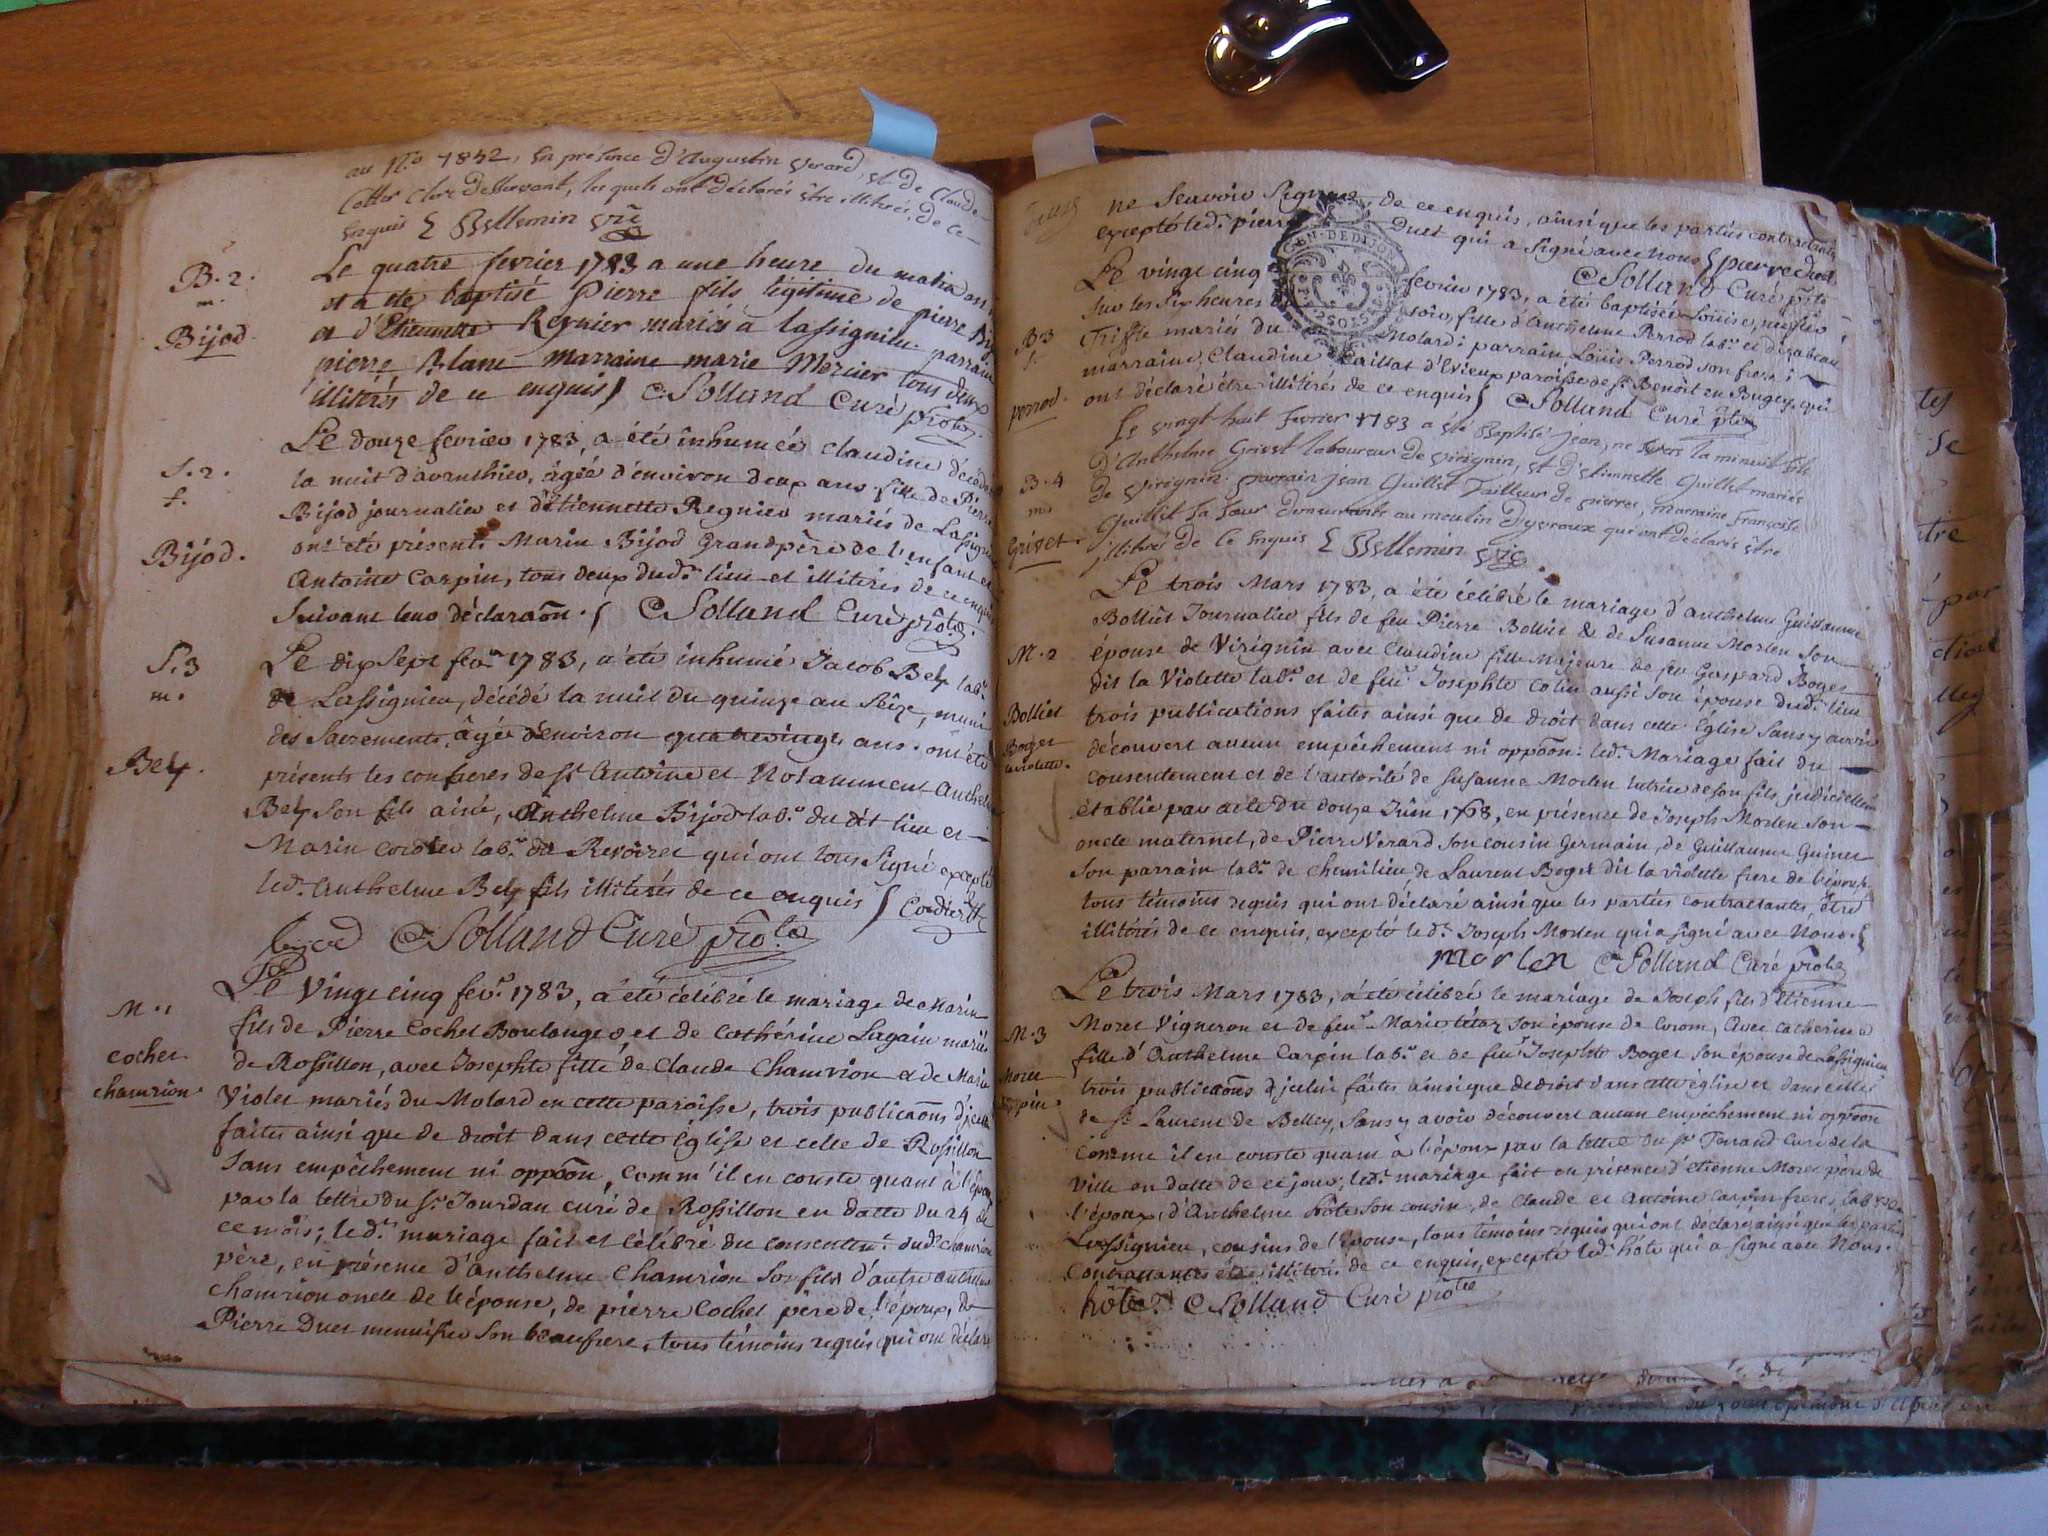 au N.o 1842, En présence d'Augustin Verard, et de Claude
Cottex Clerc desservant, les quels ont déclarés être illitérés, de ce
Enquis Bellemin vic
B. 2.
m.
Bijod.
Le quatre fevrier 1783 a une heure du matin
et a été baptisé Pierre fils légitime de pierre
et d'Etiennette Regnier mariés à lassignieu parrain
pierre Blanc marraine marie Mercier tous deux
illitérés de ce enquis C. Solland Curé
S. 2.
f.
Bijod.
Le douze fevrier 1783, a été inhumée Claudine
la nuit d'avanthier, âgée d'environ deux ans fille de Pierre
Bijod journalier et d'étiennette Regnier mariés de
ont été présents Marin Bijod Grandpère de l'enfant et
Antoine Carpin, tous deux dud.t lieu et illitérés de ce enquis
Suivant leur déclaraon. C. Solland Curé
S. 3
m.
Bely.
Le dix Sept fev.er 1783, a été inhumé Jacob Bely lab.r
de Lassignieu, décédé la nuit du quinze au Seize, muni
des Sacrements, âgé d'environ quatrevingt ans. ont été
présents les confreres de st Antoine et Notamment Anthelme
Bely Son fils ainé, Anthelme Bijod lab.r du dit lieu et
Marin cordier lab.r de Revoiret qui ont tous Signé excepté
led.t Anthelme Bely fils illitérés de ce enquis Cordier
bijod C. Solland Curé
M. 1
cochet
chamrion.
Le Vingt cinq fev.er 1783, a été célébré le mariage de Marin
fils de Pierre Cochet Boulanger et de Cathérine Lagain mariés
de Rossillon, avec Josephte fille de Claude Chamrion & de Marie
Violet mariés du Molard en cette paroisse, trois publicaons d'icelui
faites ainsi que de droit dans cette église et celle de Rossillon
Sans empêchement ni oppoon, comm' il en conste quant à l'époux
par la lettre du Sr. Jourdan curé de Rossillon en datte du 24 de
ce mois; led.t mariage fait et célébré du consentem.t dud.t chamrion
père, en présence d'Anthelme Chamrion Son fils d'autre anthelme
chamrion oncle de l'épouse, de pierre Cochet père de l'époux, de
Pierre Duet menuisier Son beaufrere, tous témoins requis qui ont déclaré
ne Scavoir Signer, de ce enquis, ainsi que les parties contractantes
excepté led.t pierre Duet qui a Signé avec nous pierre duet
C. Solland Curé
GEN. DE DIJON
B. 3
f.
perrod.
Le vingt cinq fevrier 1783, a été baptisée Louise, née hier
Sur les Six heures du Soir, fille d'Anthelme Perrod lab.r et d'izabeau
Triffle mariés du Molard: parrain Louis Perrod son frere;
marraine, Claudine Caillat d'Evieux paroisse de st. Benoît en Bugey, qui
ont déclaré être illitérés de ce enquis C. Solland Curé
B. 4
m.
Grivet.
Le vingt huit Fevrier 1783 a été Baptisé jean, né vers la minuit fils
d'Anthelme Grivet laboureur de virignin, et d'Etiennette Guillet mariés
de virignin. parrain jean Guillet Tailleur de pierres, marraine Françoise
Guillet Sa Soeur demeurante au moulin d'yeroux qui ont déclarés être
illitérés de ce Enquis Bellemin vic
M. 2
Bolliet
Boget
la violette.
Le trois Mars 1783, a été célébré le mariage d'Anthelme Guillaume
Bolliet Journalier fils de feu Pierre Bolliet & de Susanne Morlen Son
épouse de Virignin avec Claudine fille majeure de feu Gaspard Boget
dit la Violette lab.r et de feue Josephte Colin aussi Son épouse dud.t lieu
trois publications faites ainsi que de droit dans cette Eglise Sans y avoir
découvert aucun empêchement ni oppoon. led.t Mariage fait du
consentement et de l'autorité de Susanne Morlen tutrice de son fils, judiciellem.t
établie par acte du douze Juin 1768, en présence de Joseph Morlen Son
oncle maternel, de Pierre Verard Son cousin Germain, de Guillaume Guinet
Son parrain lab.r de chemilieu, de Laurent Boget dit la violette frere de l'épouse
tous témoins requis qui ont déclaré ainsi que les parties contractantes, être
illitérés de ce enquis, excepté led.t Joseph Morlen qui a signé avec Nous.
morlen C. Solland Curé
M. 3
Moret
Carpin.
Le trois Mars 1783, a été célébré le mariage de Joseph fils d'Etienne
Moret Vigneron et de feue Marie Son épouse de Coron, Avec Catherine
fille d'Anthelme Carpin lab.r et de feue Josephte Boget Son épouse de Lassignieu
trois publicaons d'icelui faites ainsi que de droit dans cette église et dans celle
de St. Laurent de Belley, Sans y avoir découvert aucun empêchement ni oppoon
Comme il en conste quant à l'époux par la lettre du Sr. Ferrand Curé de la
Ville en datte de ce jour; led.t mariage fait en présence d'etienne Moret père de
l'époux, d'Anthelme hôte Son cousin, de Claude et Antoine Carpin freres, lab.rs de
Lassignieu, cousins de l'épouse, tous témoins requis qui ont déclaré ainsi que les parties
Contractantes être illitérés de ce enquis, excepté led.t hôte qui a signé avec Nous.
hôte C. Solland Curé